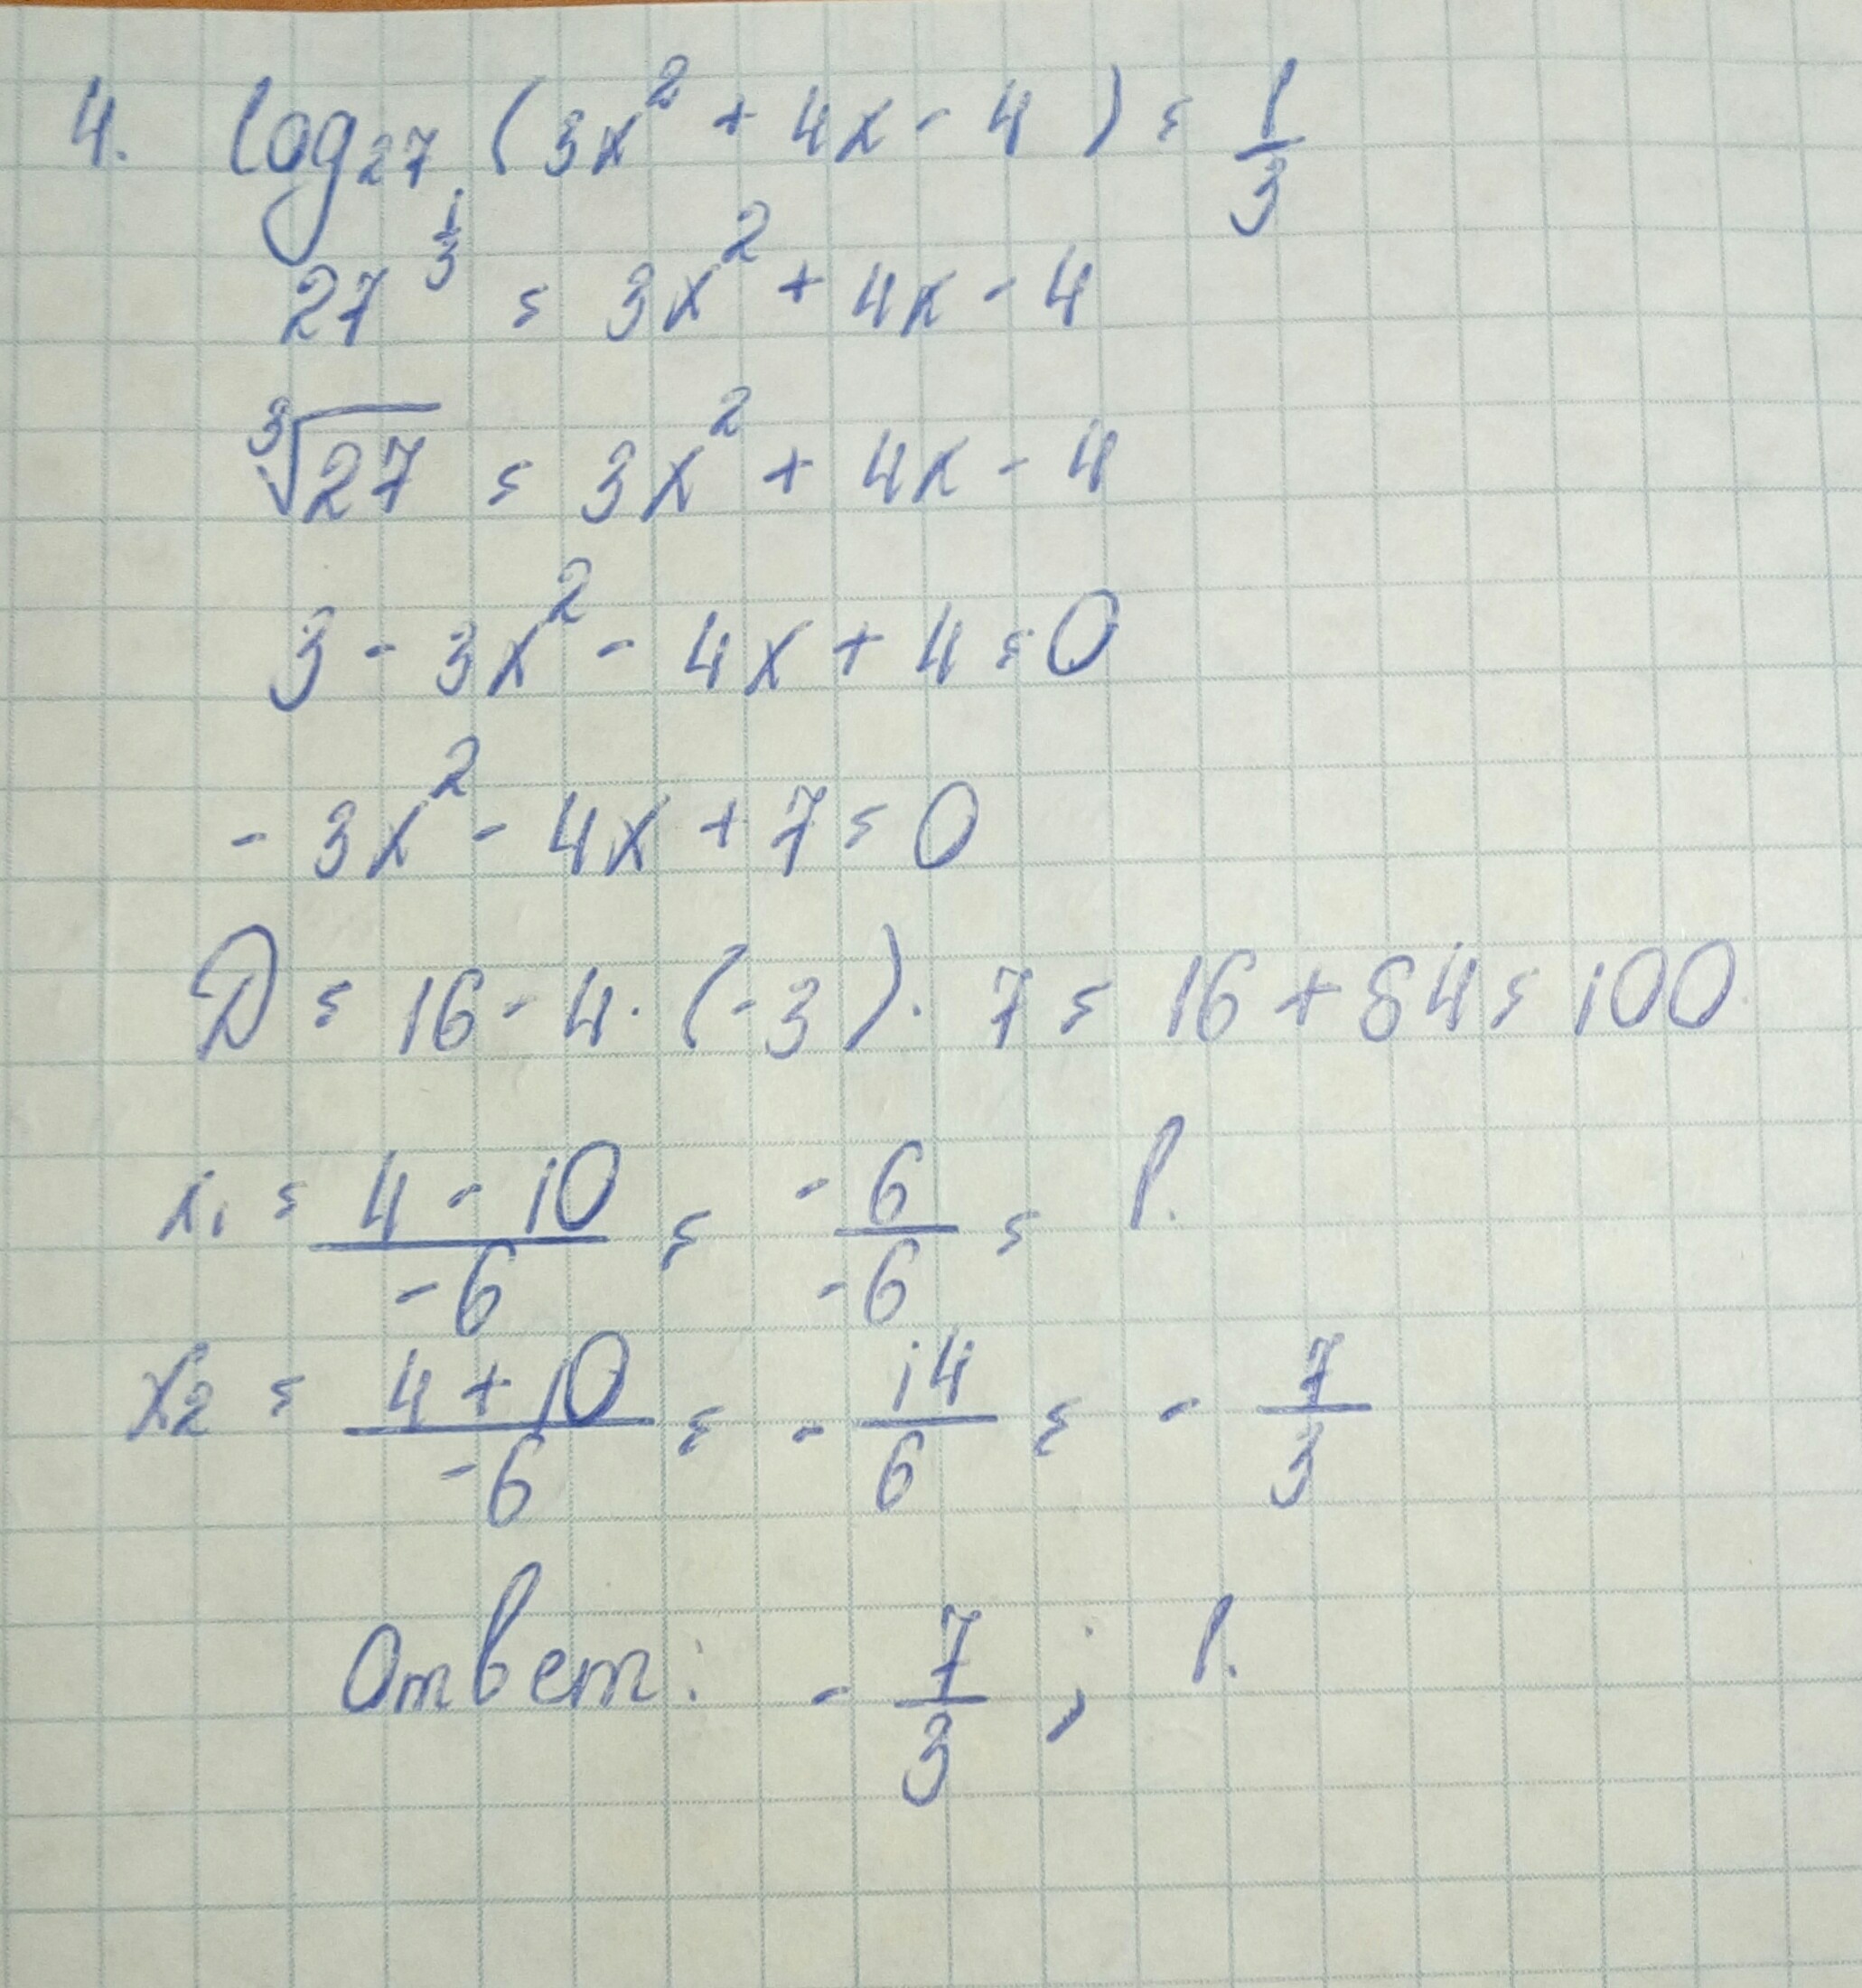 4. log₂₇ (3x² + 4x - 4) = 1/3
27^(1/3) = 3x² + 4x - 4
∛27 = 3x² + 4x - 4
3 - 3x² - 4x + 4 = 0
- 3x² - 4x + 7 = 0
D = 16 - 4 · (-3) · 7 = 16 + 84 = 100
x₁ = (4 - 10)/(-6) = (-6)/(-6) = 1.
x₂ = (4 + 10)/(-6) = - 14/6 = - 7/3
Ответ: - 7/3 ; 1.